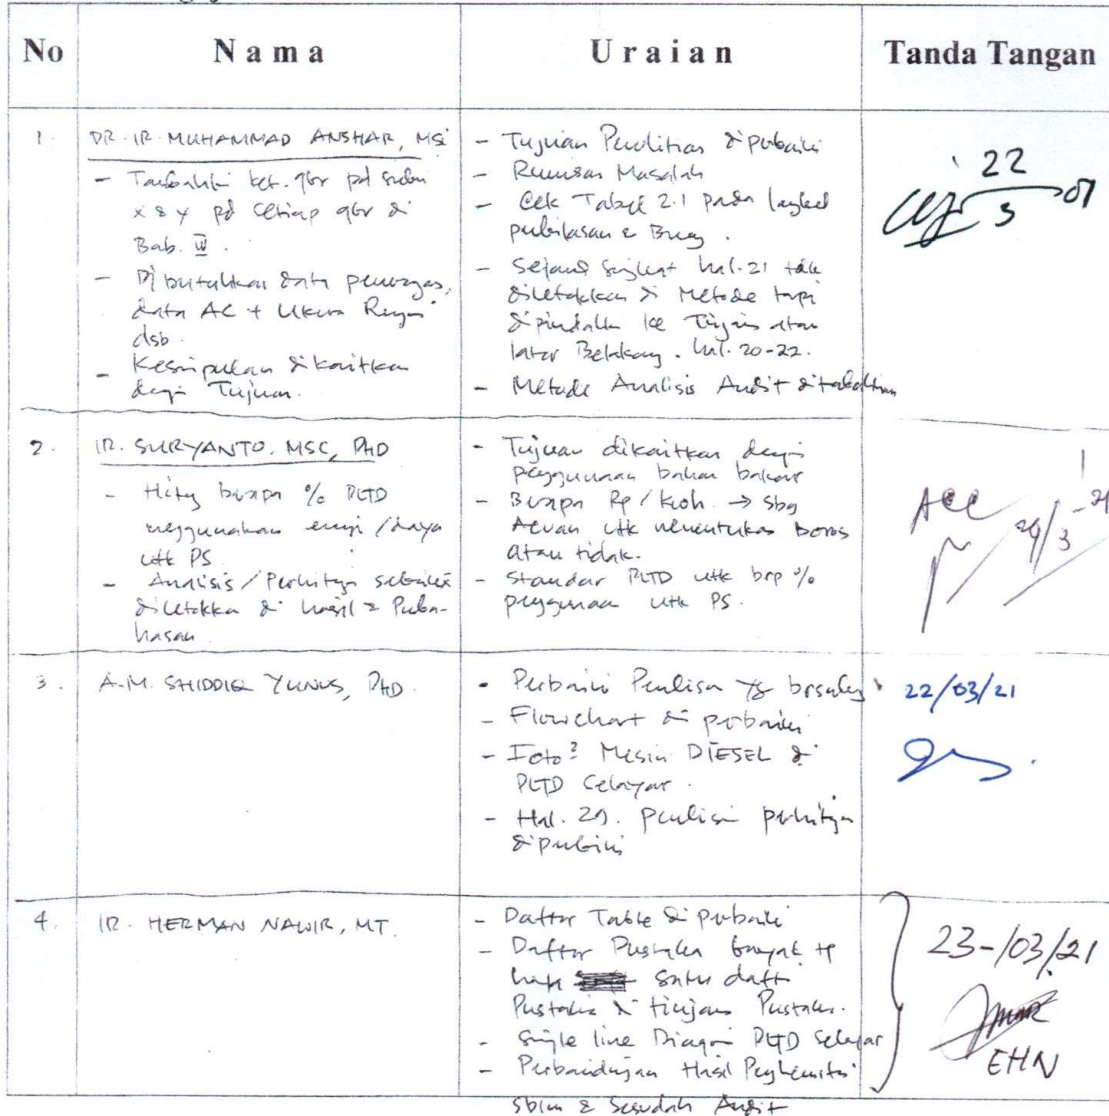 No
N a m a
U r a i a n
Tanda Tangan
1.
DR. IR. MUHAMMAD ANSHAR, MSi
- Tambahkan ket. gbr pd sumbu
x & y pd setiap gbr di
Bab. IV.
- Dibutuhkan data
data AC + Ukuran
dsb.
- Kesimpulan dikaitkan
Tujuan.
- Tujuan Penelitian diperbaiki
- Rumusan Masalah
- Cek Tabel 2.1 pada
.
- hal. 21 tdk
diletakkan di Metode tapi
dipindahkan ke atau
latar Belakang. hal. 20-22.
- Metode Analisis Audit
22
3
2.
IR. SURYANTO, MSC, PHD
- berapa % PLTD
menggunakan energi / daya
utk PS.
- Analisis / sebaiknya
diletakkan di hasil & Pemba-
hasan.
- Tujuan dikaitkan
penggunaan bahan bakar
- Berapa Rp / Kwh. → sbg
Acuan utk menentukan boros
atau tidak.
- Standar PLTD utk brp %
penggunaan utk PS.
ACC
29/3-21
3.
A.M. SHIDDIQ YUNUS, PHD.
- Perbaiki Penulisan yg
- Flowchart di perbaiki
- Foto² Mesin DIESEL di
PLTD Selayar.
- Hal. 29. penulisan
diperbaiki
22/03/21
4.
IR. HERMAN NAWIR, MT.
- Daftar Table di perbaiki
- Daftar Pustaka banyak tp
satu
Pustaka di Pustaka.
- Single line Diagram PLTD Selayar
- Perbandingan Hasil
sblm & Sesudah Audit
23-/03/21
EHN